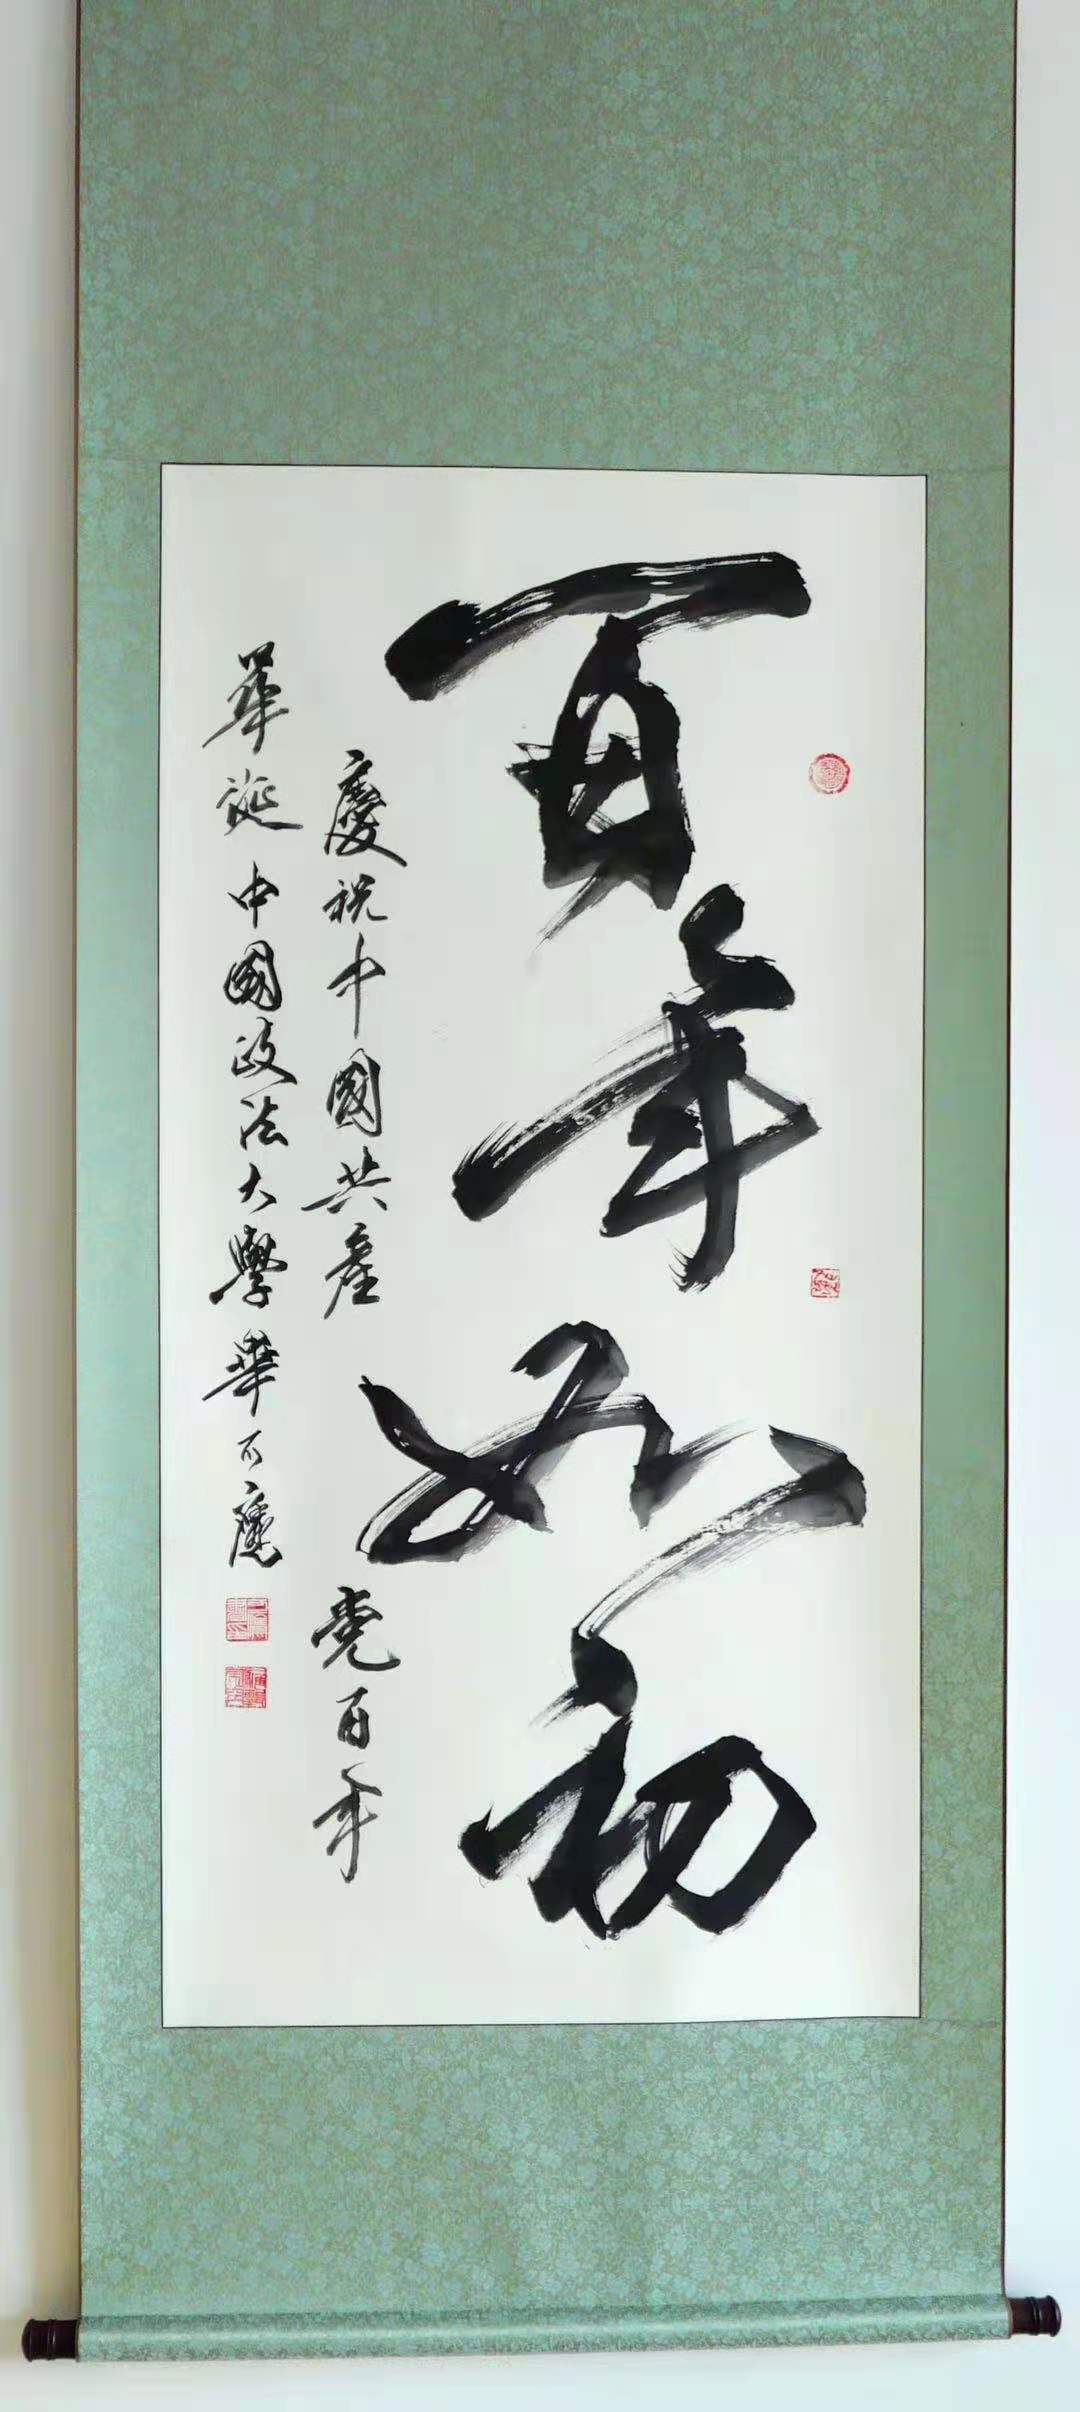 百年如初
慶祝中國共產黨百年
華誕 中國政法大學 華